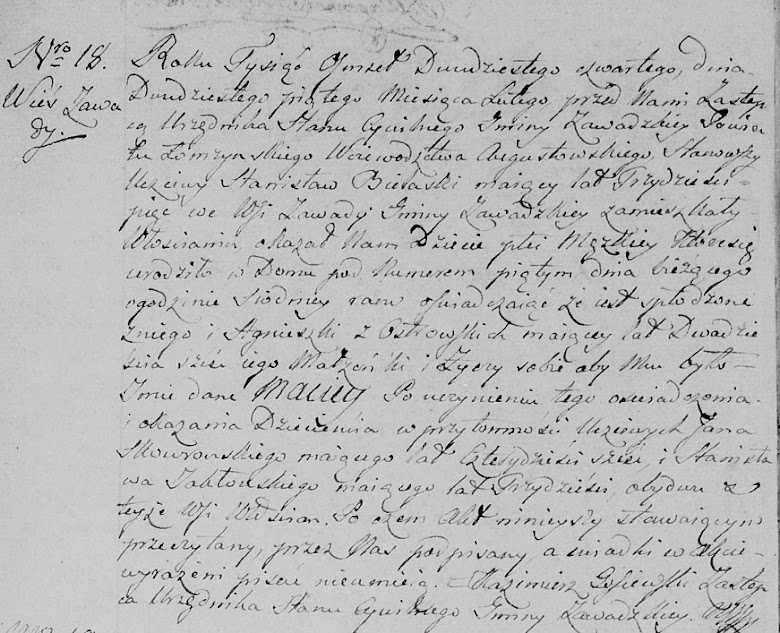 Nro 18.
Wieś Zawa
dy.
Roku Tysiąc Ośmset Dwudziestego czwartego, dnia
Dwudziestego piątego Miesiąca Lutego przed Nami Zastęp
cą Urzędnika Stanu Cywilnego Gminy Zawadzkiey Powia
tu Łomżynskiego Woiewodztwa Augustowskiego, Stanowszy
Uczciwy Stanisław Bielaski maiący lat Trzydzieści
pięć we Wsi Zawady Gminy Zawadzkiey zamieszkały
Włościanin, okazał Nam Dziecie płci Męzkiey które się
urodziło w Domu pod Numerem piątym dnia bieżącego
ogodzinie Siodmey rano oświadczaiąc że iest spłodzone
zniego i Agnieszki z Ostrowskich maiącey lat Dwadzie
ścia sześć iego Małżonki i życzy sobie aby Mu było
Imie dane Maciey Po uczynieniu tego oświadczenia
i okazania Dziecięcia w przytomności Uczciwych Jana
Skowrowskiego maiącego lat Czterydzieści sześć, i Stanisła
wa Jabłowskiego maiącego lat Trzydzieści, obydwu z
teyże Wsi Włościan. Po czem Akt ninieyszy stawaiącym
przeczytany, przez Nas podpisany, a świadki w Akcie
wyrażeni pisać nieumieią. Kazimierz Zastęp
ca Urzędnika Stanu Cywilnego Gminy Zawadzkiey.